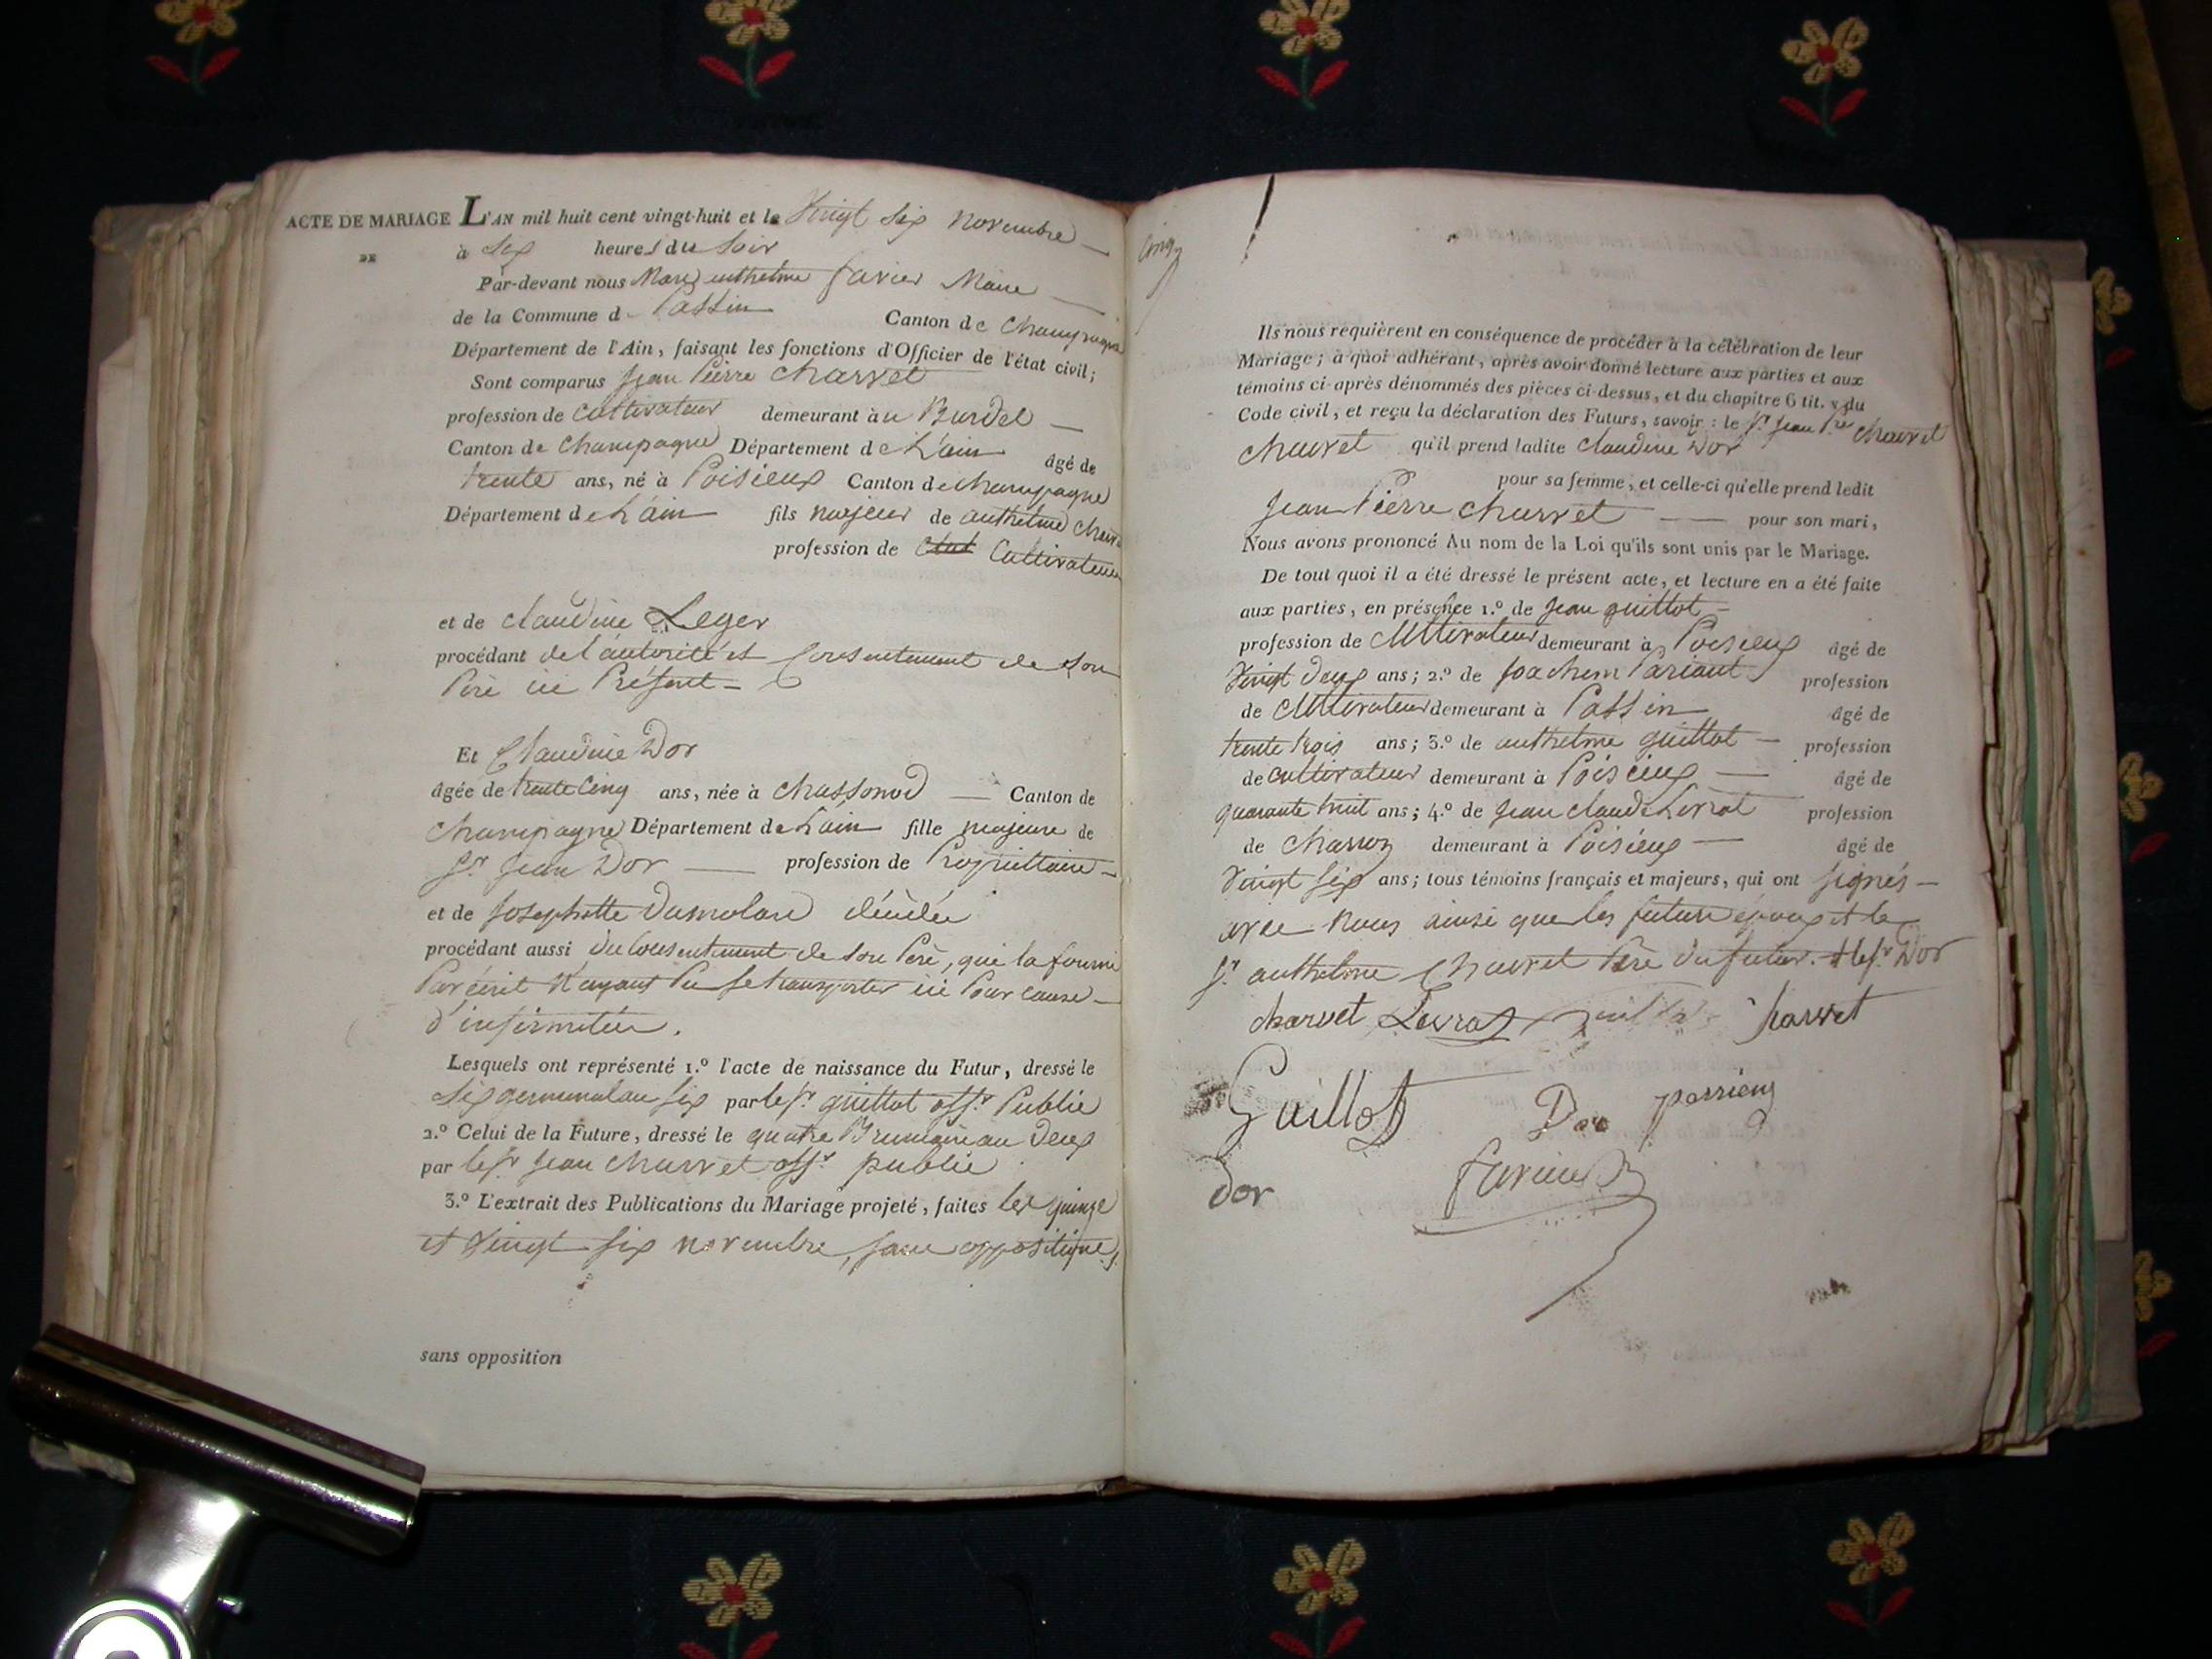 ACTE DE MARIAGE L'AN mil huit cent vingt-huit et le Vingt Six novembre
DE
à Six heures du Soir
Par-devant nous Marc anthelme favier Maire
de la Commune de Passin Canton de Champagne
Département de l'Ain, faisant les fonctions d'Officier de l'état civil;
Sont comparus Jean Pierre Charvet
profession de cultivateur demeurant au Burdel
Canton de Champagne Département de L'ain âgé de
trente ans, né à Poisieux Canton de champagne
Département de L'ain fils majeur de anthelme
profession de Cultivateur
et de claudine Leger
procédant de l'autorité et Consentement de son
Père ici Présent
Et Claudine Dor
âgée de trente Cinq ans, née à chassonod Canton de
Champagne Département de Lain fille majeure de
Sr. Jean Dor profession de Propriettaire
et de Josephette Dumolard
procédant aussi du Consentement de son Père, que la fourni
Par écrit N'ayant Pu se transporter ici Pour cause
d'infirmitée.
Lesquels ont représenté 1.º l'acte de naissance du Futur, dressé le
Six germinal an Six par le Sr. guillot offr. Public
2.º Celui de la Future, dressé le quatre Brumaire an deux
par le Sr Jean Charvet offr. public
3.º L'extrait des Publications du Mariage projeté, faites les quinze
et Vingt Six novembre, sans
sans opposition
cinq
Ils nous requièrent en conséquence de procéder à la célébration de leur
Mariage; à quoi adhérant, après avoir donné lecture aux parties et aux
témoins ci-après dénommés des pièces ci-dessus, et du chapitre 6 tit. v du
Code civil, et reçu la déclaration des Futurs, savoir: le Sr. Jean Pre Charvet
charvet qu'il prend ladite claudine Dor
pour sa femme, et celle-ci qu'elle prend ledit
Jean Pierre charvet pour son mari,
Nous avons prononcé Au nom de la Loi qu'ils sont unis par le Mariage.
De tout quoi il a été dressé le présent acte, et lecture en a été faite
aux parties, en présence 1.º de Jean guillot
profession de Cultivateur demeurant à Poisieux âgé de
Vingt deux ans; 2.º de Joachim profession
de Cultivateur demeurant à Passin âgé de
trente trois ans; 3.º de anthelme guillot profession
de cultivateur demeurant à Poisieux âgé de
quarante huit ans; 4.º de Jean claude Levrat profession
de Charron demeurant à Poisieux âgé de
Vingt Six ans; tous témoins français et majeurs, qui ont signés
avec nous ainsi que les future époux et le
Sr. anthelme Charvet Père du futur. et le Sr. Dor
charvet Levrat charvet
Guillot Dor
dor favier